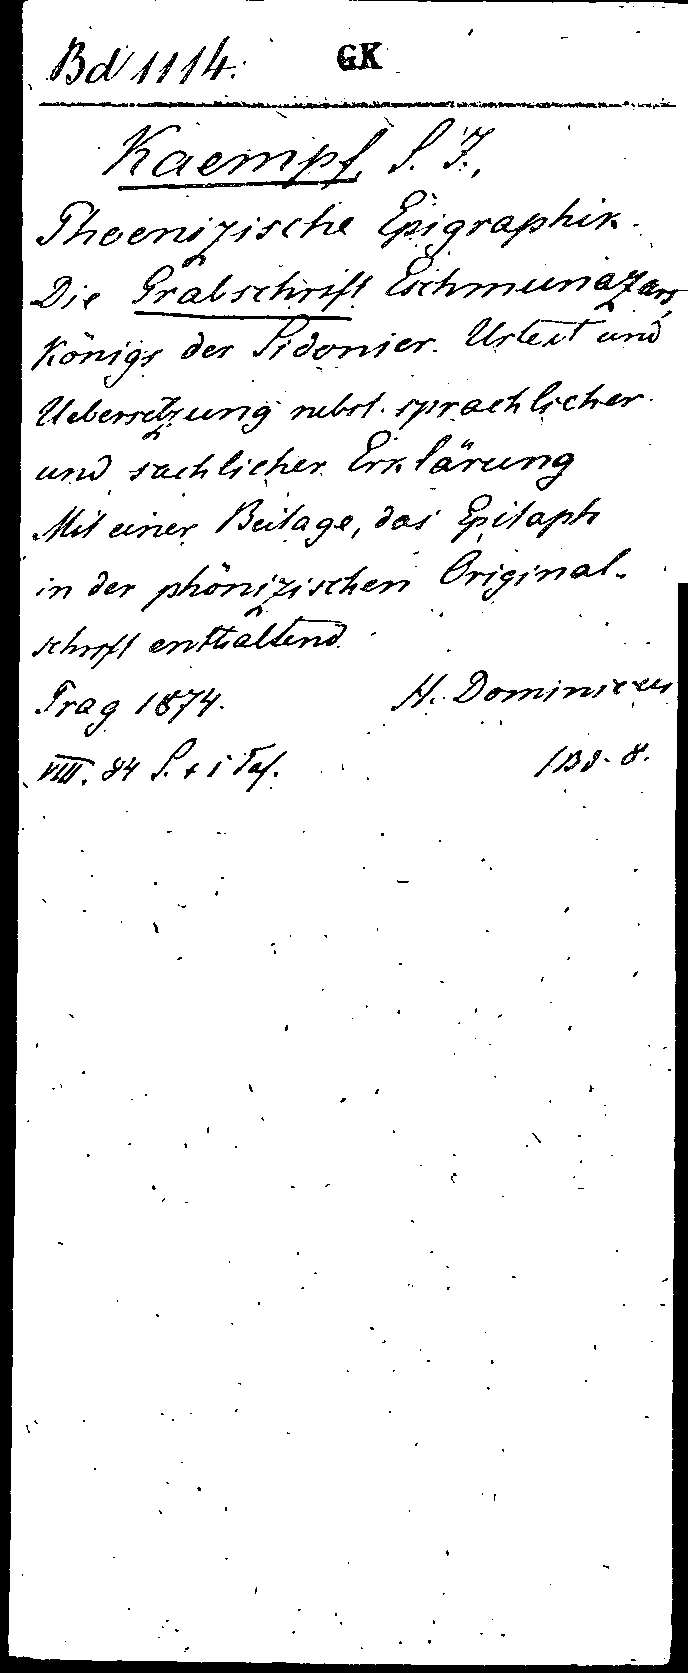 Bd 1114. GK
Kaempf, S. I.,
Phoenizische Epigraphik.
Die Grabschrift Eschmunazars,
Königs der Sidonier. Urtext und
Uebersetzung nebst sprachlicher
und sachlicher Erklärung
Mit einer Beilage, das Epitaph
in der phönizischen Original-
schrift enthaltend.
Prag 1874. H. Dominicus
VIII. 84 S. + 1 Taf. 1 Bd. 8.